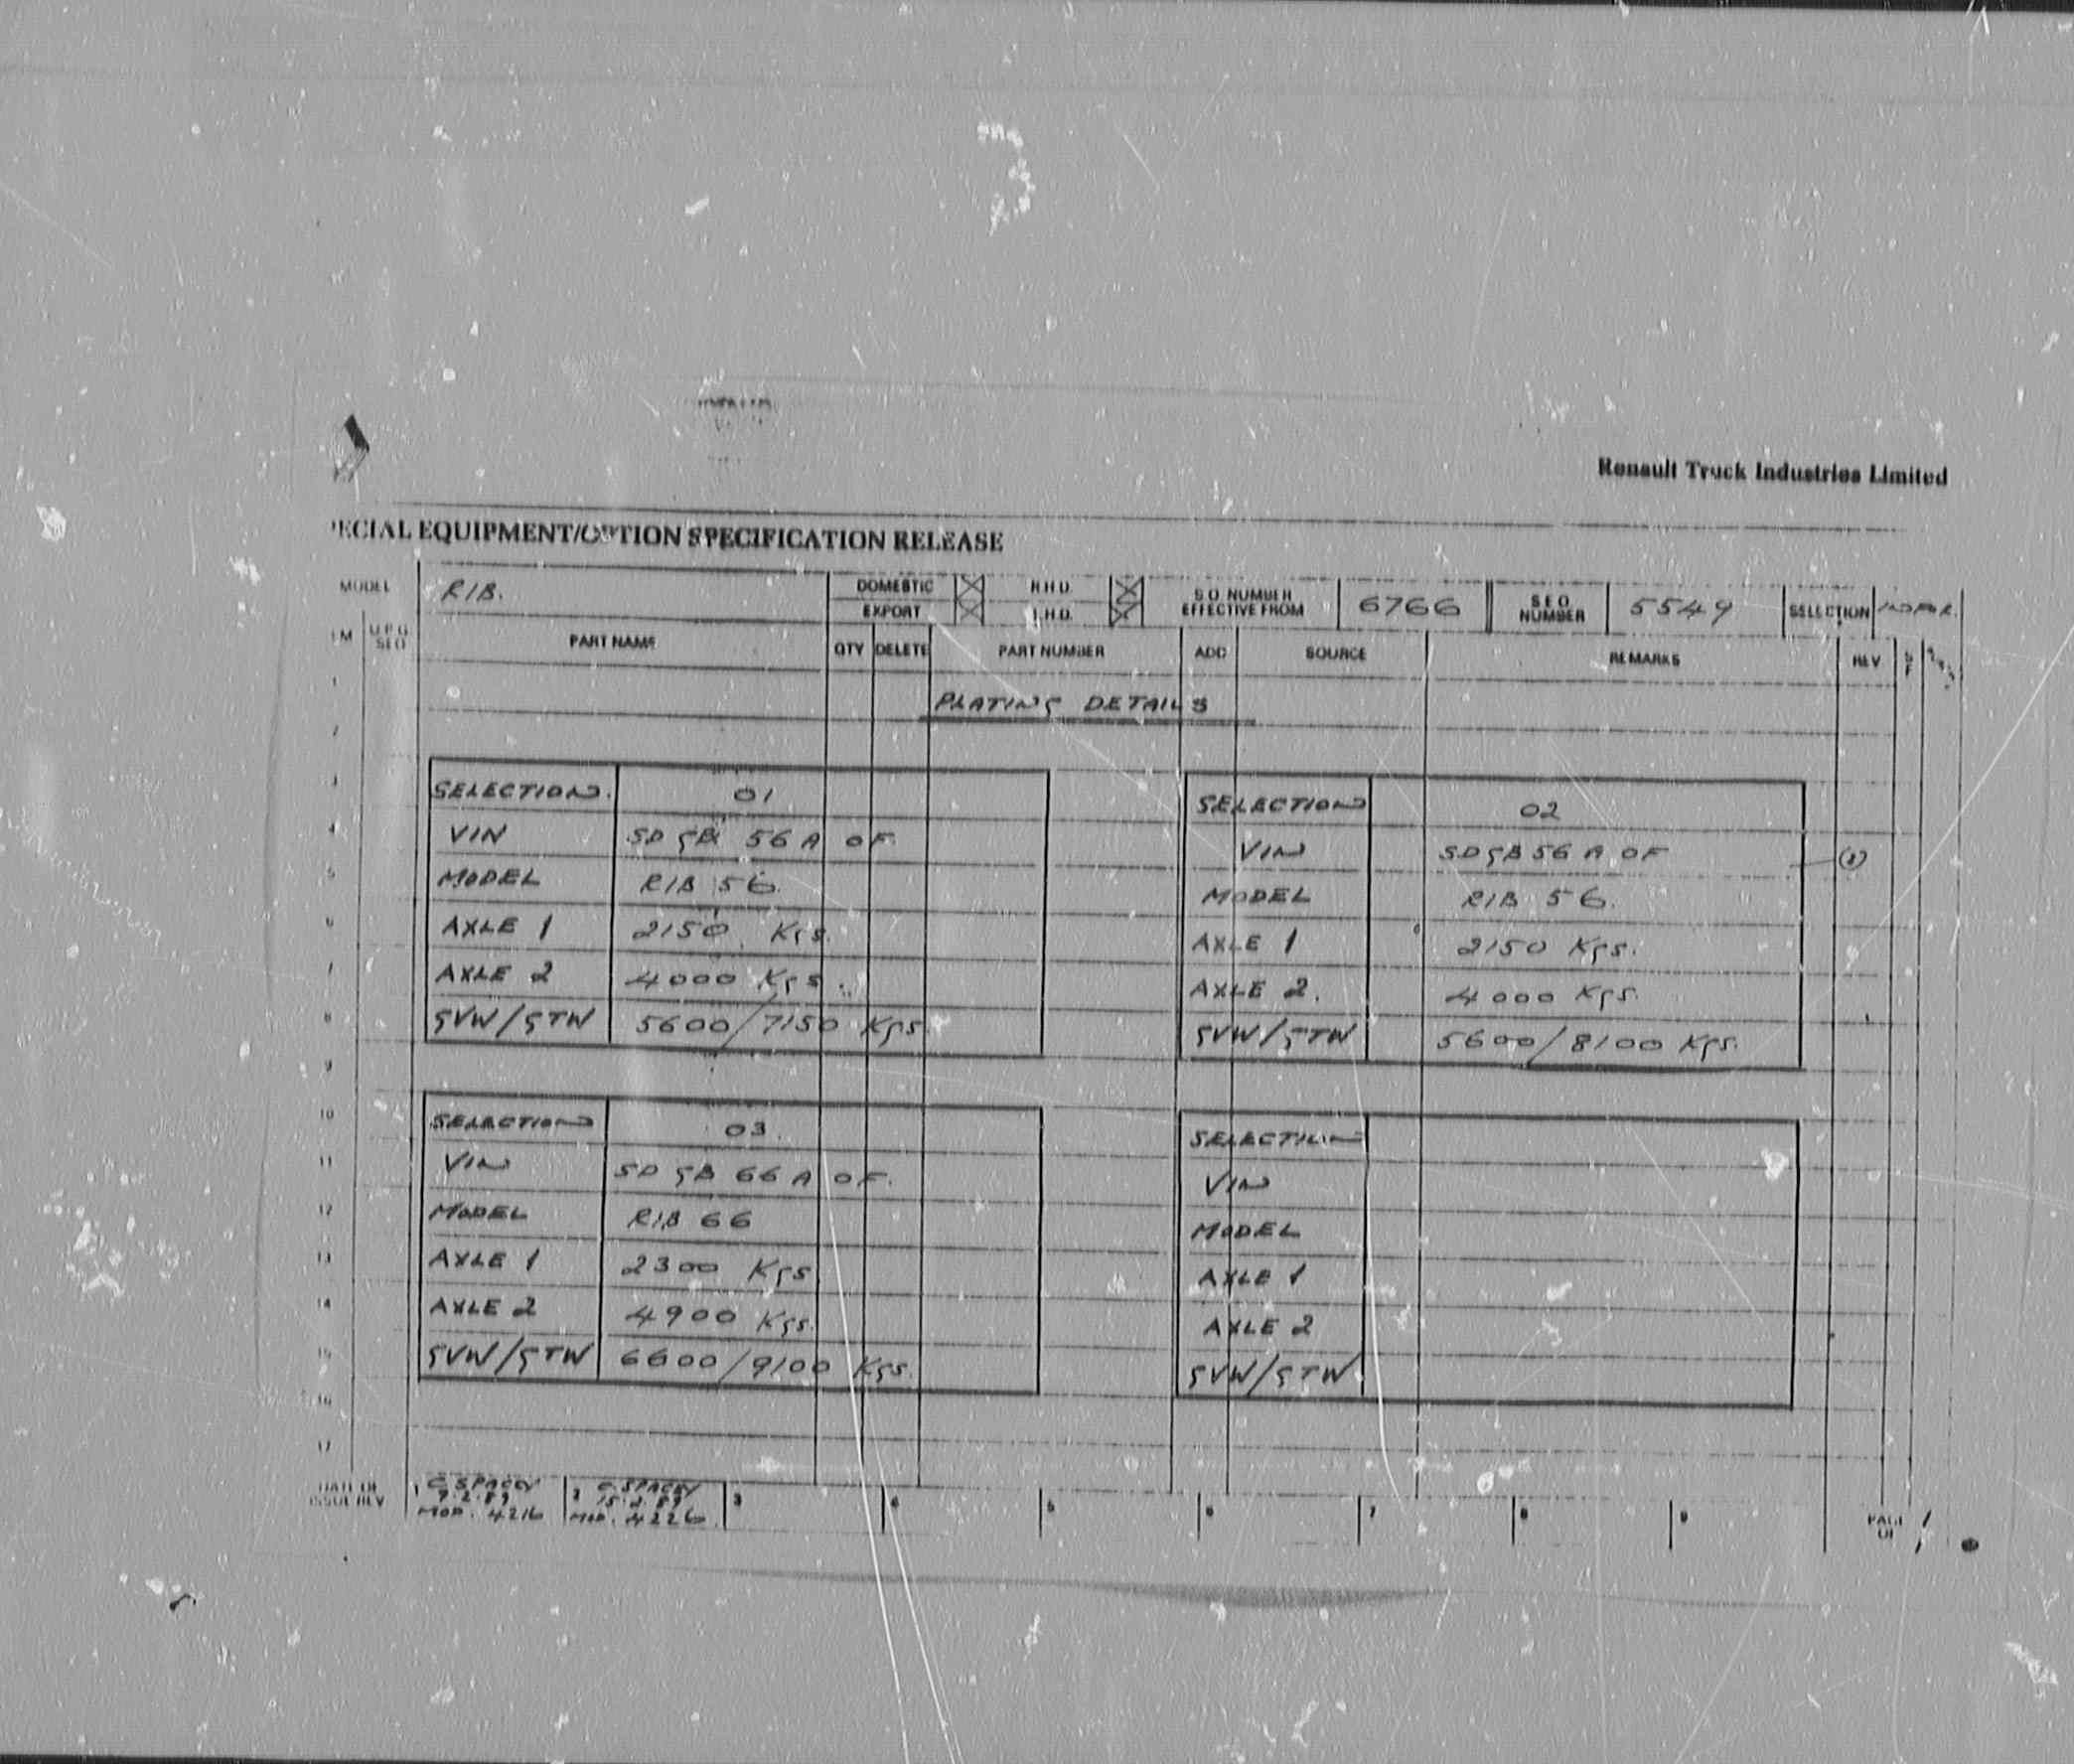 Renault Truck Industries Limited
ECIAL EQUIPMENT/OPTION SPECIFICATION RELEASE
MODEL R1B. DOMESTIC R.H.D. S.O. NUMBER EFFECTIVE FROM 6766 S E O NUMBER 5549 SELECTION
EXPORT L.H.D.
PART NAME QTY DELETE PART NUMBER ADD SOURCE REMARKS REV
1
PLATING DETAILS
2
3 SELECTION. 01 SELECTION 02
4 VIN SDGB 56 A 0F. VIN SDGB 56 A 0F
5 MODEL R1B 56. MODEL R1B 56.
6 AXLE 1 2150 Kgs. AXLE 1 2150 Kgs.
7 AXLE 2 4000 Kgs. AXLE 2. 4000 Kgs.
8 GVW/GTW 5600/7150 Kgs. GVW/GTW 5600/8100 Kgs.
9
10 SELECTION 03. SELECTION
11 VIN SD GB 66 A 0F. VIN
12 MODEL R1B 66 MODEL
13 AXLE 1 2300 Kgs AXLE 1
14 AXLE 2 4900 Kgs. AXLE 2
15 GVW/GTW 6600/9100 Kgs. GVW/GTW
16
17
DATE OF ISSUE/REV 1 C SPACEY 2 C. SPACEY 3 4 5 6 7 8 9 PAGE 1
9.2.89 15.2.89 OF 1
MOD. 4216 MOD. 4226